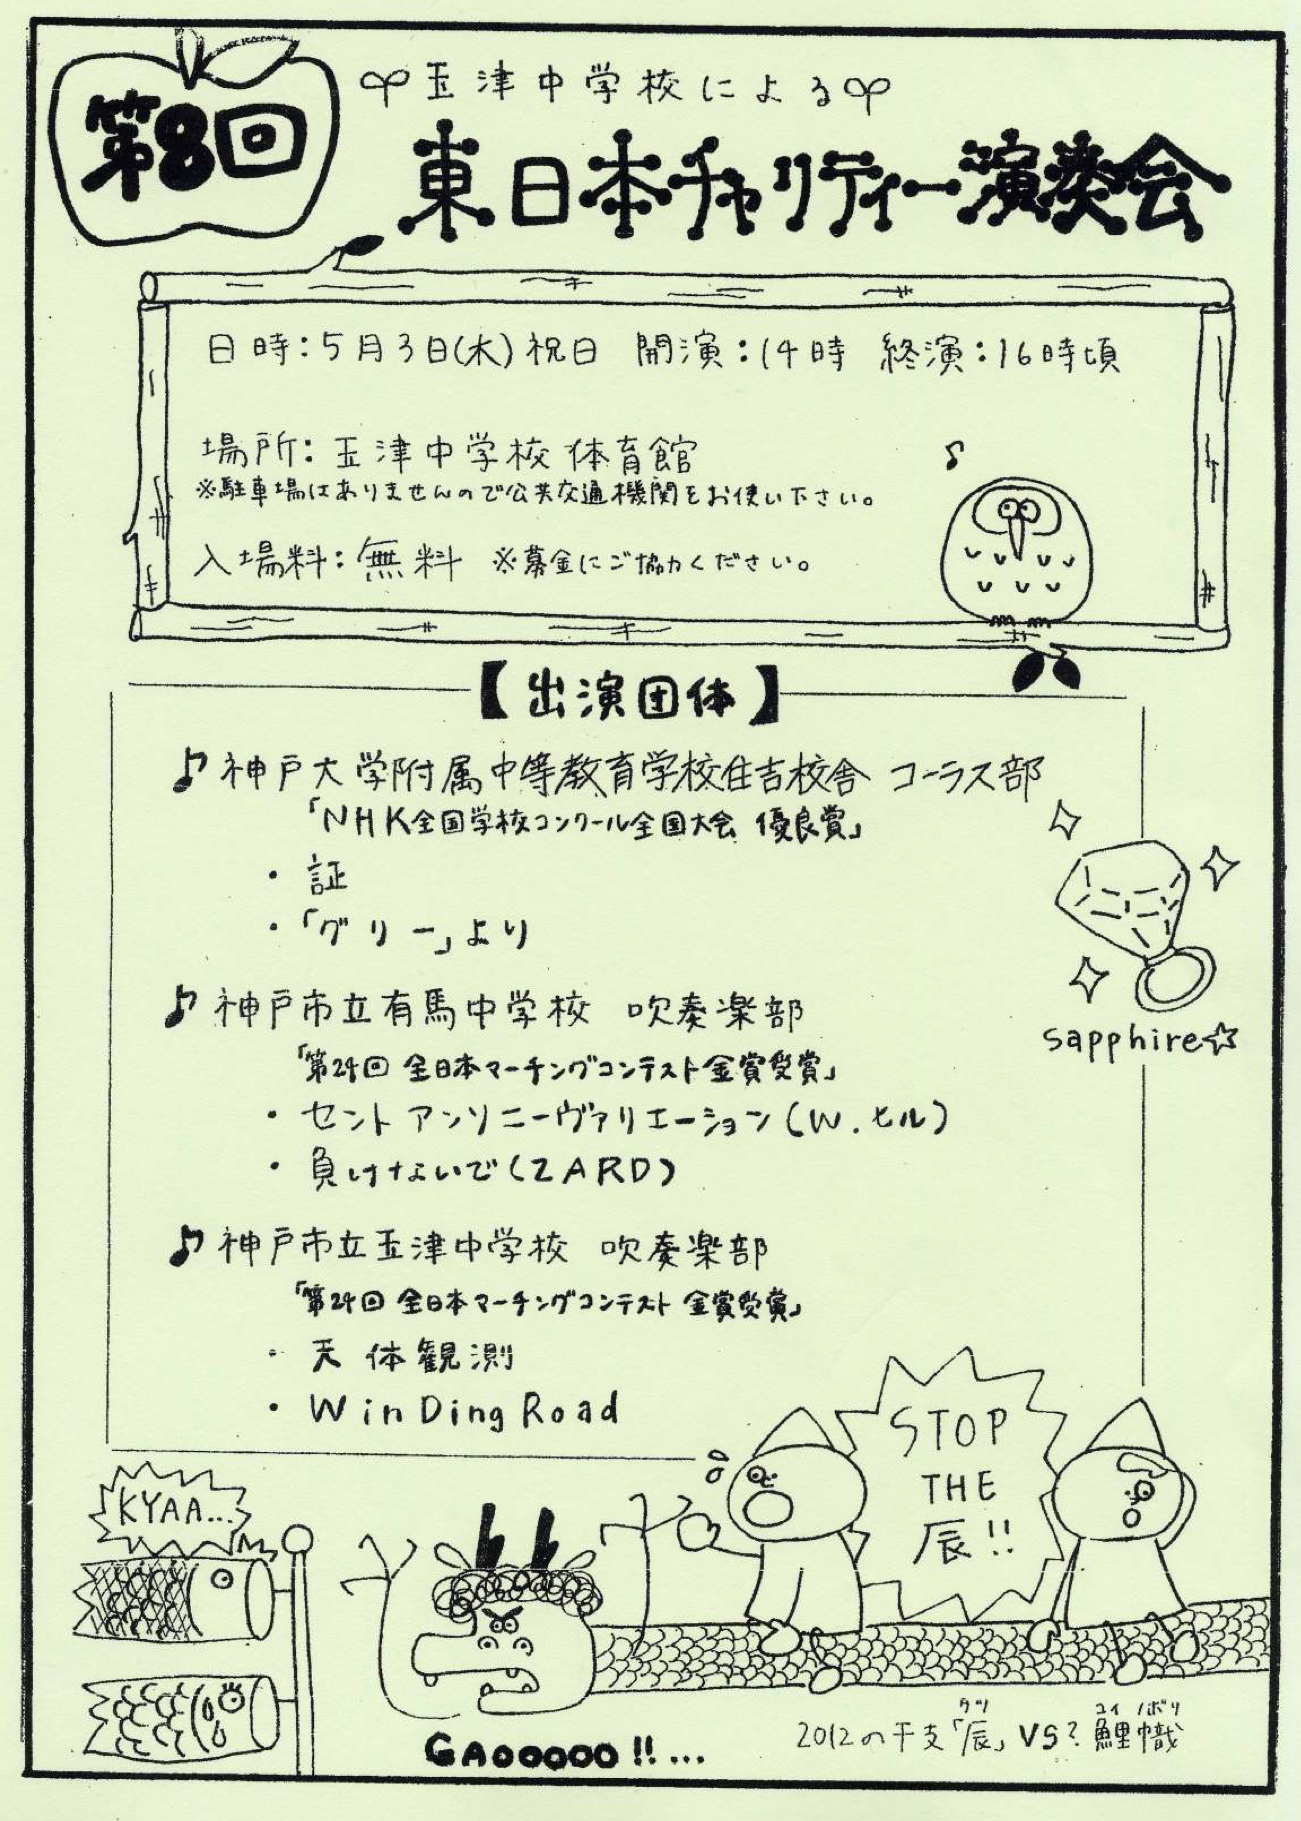 第8回
玉津中学校による
東日本チャリティー演奏会
日時:5月3日(木)祝日 開演:14時 終演:16時頃
場所:玉津中学校体育館
※駐車場はありませんので公共交通機関をお使い下さい。
入場料:無料 ※募金にご協力ください。
【出演団体】
♪神戸大学附属中等教育学校住吉校舎 コーラス部
「NHK全国学校コンクール全国大会 優良賞」
・証
・「グリー」より
♪神戸市立有馬中学校 吹奏楽部
「第24回 全日本マーチングコンテスト金賞受賞」
・セントアンソニーヴァリエーション(W.ヒル)
・負けないで(ZARD)
sapphire☆
♪神戸市立玉津中学校 吹奏楽部
「第24回 全日本マーチングコンテスト 金賞受賞」
・天体観測
・WinDingRoad
STOP
THE
辰!!
KYAA...
GAOOOOO!!...
タツ コイノボリ
2012の干支「辰」VS?鯉幟